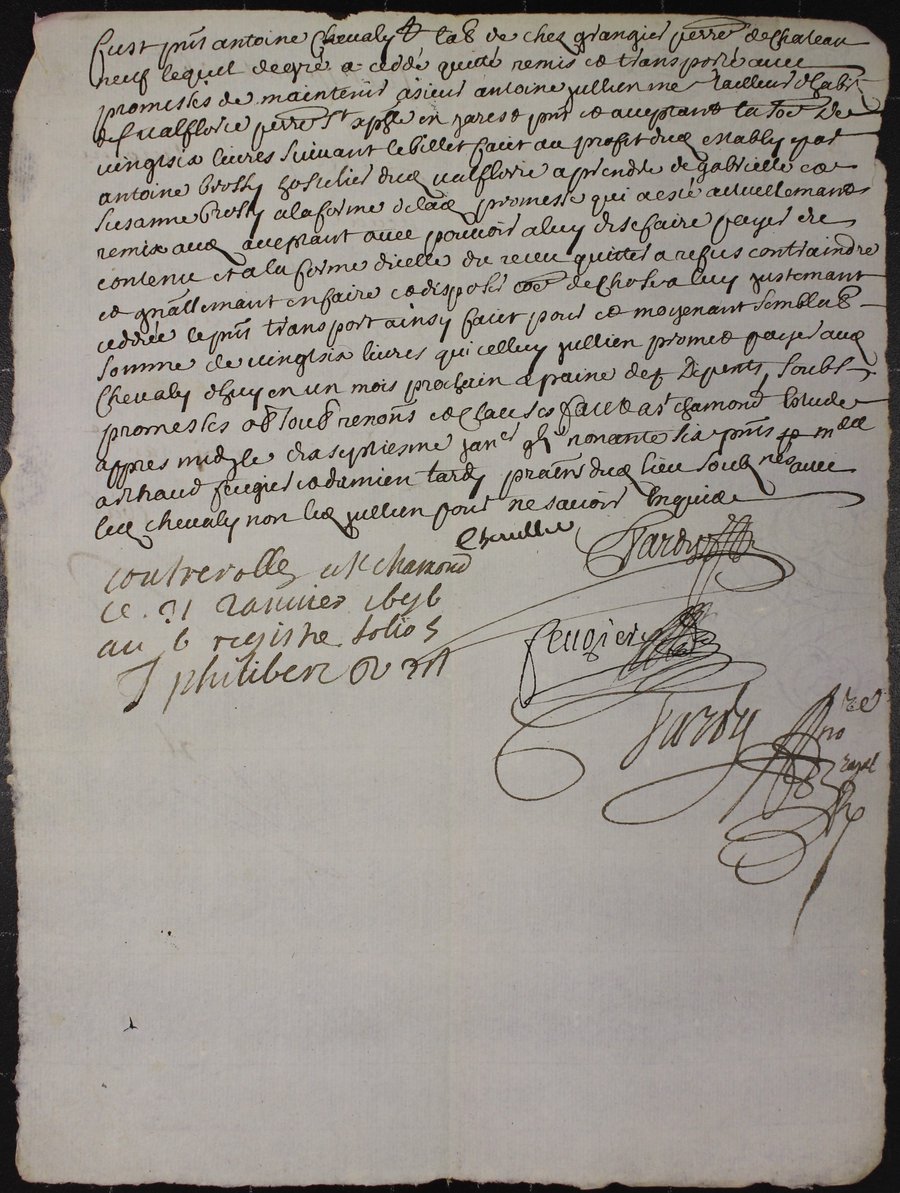 fust pnt antoine Chevaly hab de chez grangier perre de Chateau
neuf lequel de gré a cédé quitté remis et transporté avec
promesses de maintenir a sieur antoine jullien me tailleur d'habit
de valflorie perre St en jarest pnt et aceptant la soe De
vingt six livres suivant le billet faict au profit dud Chevally par
antoine brossy hostelier dud valflorie a prendre de gabrielle et
susanne brossy a la forme de lad promesse qui a esté actuellemant
remix aud aceptant avec pouvoir a luy de se faire payer du
contenu et a la forme dicelle du receu quitter a refus contraindre
et gnallemant en faire et disposer coe de chose a luy justemant
ceddée le pnt transport ainsy faict pour et moyenant semblab
somme de vingt six livres qu'icelluy jullien promet payer aud
Chevaly d'huy en un mois prochain a paine de Depents, soubs
promesses ob soub renons et clauses faict a st chamond estude
appres midy le dixseptiesme janer nonante six pnts me
arthaud feugier et damien tardy praens dud lieu soubnes avec
led chevaly non led jullien pour ne savoir Enquis
Chevallie Tardy
controllé a st chamond
ce 21 Janvier 1696
au 6 registre folio 5
feugier
philibert
Tardy no re
royal